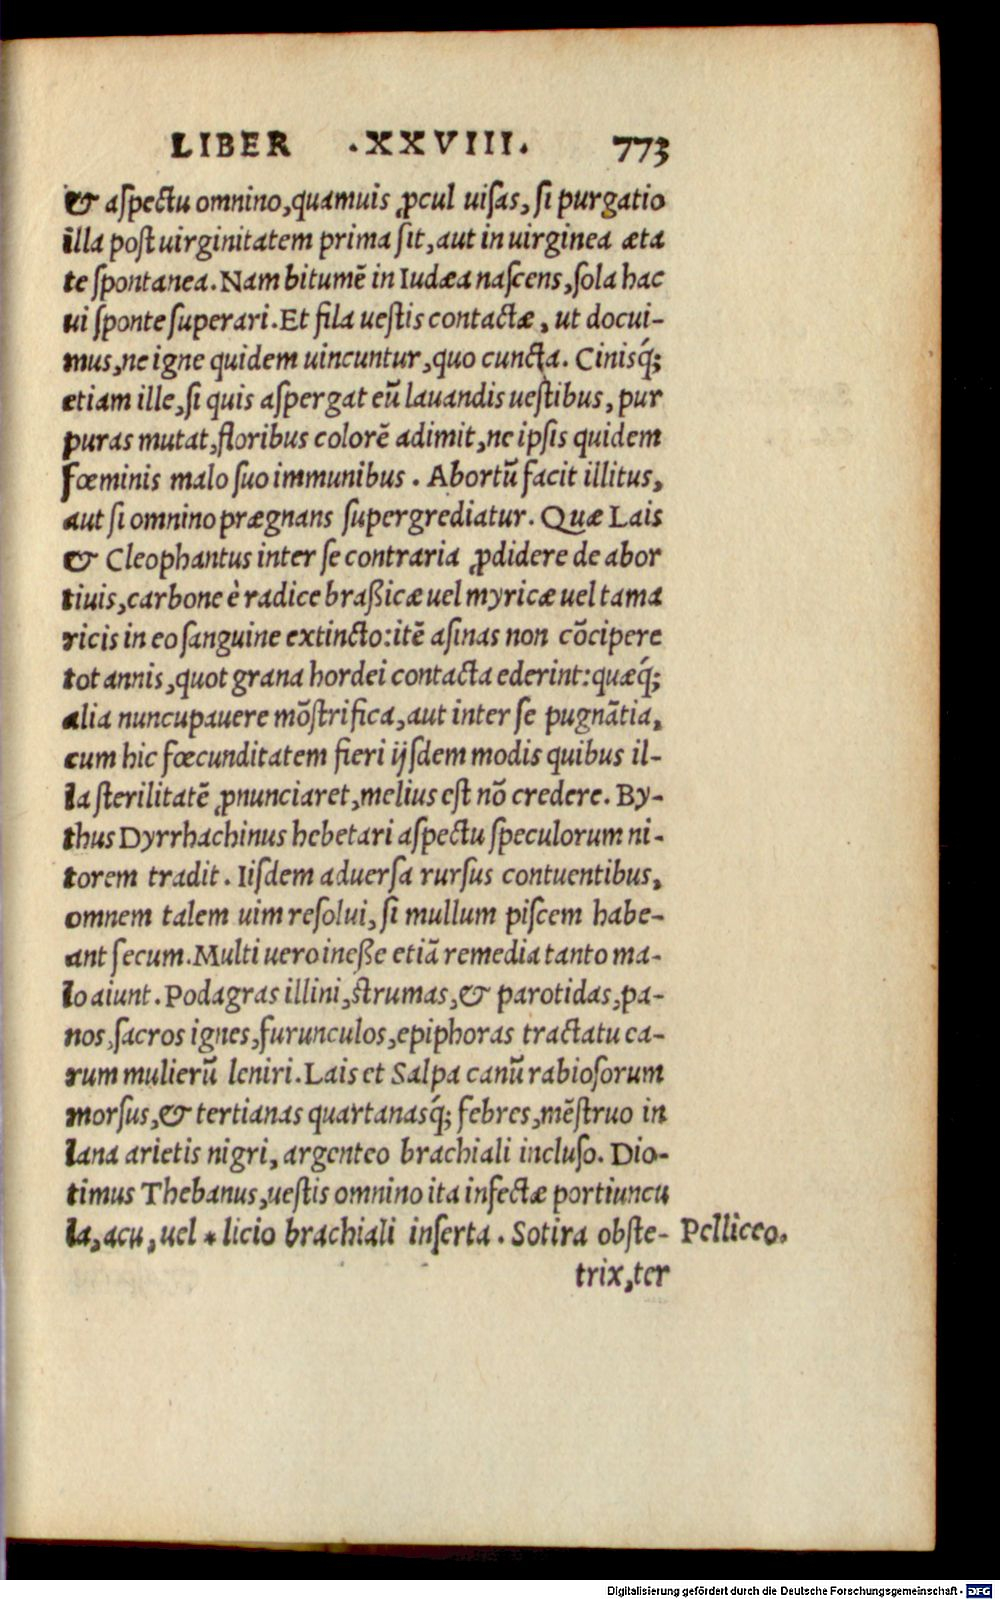 LIBER .XXVIII. 773
& aſpectu omnino,quamuis ꝓcul uiſas, ſi purgatio
illa poſt uirginitatem prima ſit, aut in uirginea æta
te ſpontanea. Nam bitumẽ in Iudæa naſcens, ſola hac
ui ſponte ſuperari. Et fila ueſtis contactæ, ut docui-
mus, ne igne quidem uincuntur, quo cuncta. Cinisq́;
etiam ille, ſi quis aſpergat eũ lauandis ueſtibus, pur
puras mutat, floribus colorẽ adimit, ne ipſis quidem
fœminis malo ſuo immunibus. Abortũ facit illitus,
aut ſi omnino prægnans ſupergrediatur. Quæ Lais
& Cleophantus inter ſe contraria ꝓdidere de abor
tiuis, carbone è radice braßicæ uel myricæ uel tama
ricis in eo ſanguine extincto: itẽ aſinas non cõcipere
tot annis, quot grana hordei contacta ederint: quæq́;
alia nuncupauere mõſtrifica, aut inter ſe pugnãtia,
cum hic fœcunditatem fieri ijſdem modis quibus il-
la ſterilitatẽ ꝓnunciaret, melius eſt nõ credere. By-
thus Dyrrhachinus hebetari aſpectu ſpeculorum ni-
torem tradit. Iiſdem aduerſa rurſus contuentibus,
omnem talem uim reſolui, ſi mullum piſcem habe-
ant ſecum. Multi uero ineße etiã remedia tanto ma-
lo aiunt. Podagras illini, ſtrumas, & parotidas, pa-
nos, ſacros ignes, furunculos, epiphoras tractatu ca-
rum mulierũ leniri. Lais et Salpa canũ rabioſorum
morſus, & tertianas quartanasq́; febres, mẽſtruo in
lana arietis nigri, argenteo brachiali incluſo. Dio-
timus Thebanus, ueſtis omnino ita infectæ portiuncu
la, acu, uel * licio brachiali inſerta. Sotira obſte- Pellìceo.
trix, ter
Digitalisierung gefördert durch die Deutsche Forschungsgemeinschaft - DFG